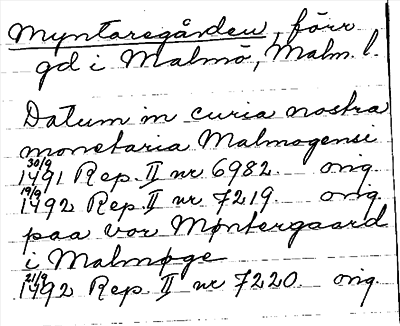 Myntaregården, förr
gd i Malmö, Malm. l.
Datum in curia nostra
monetaria Malmogensi
30/9 1491 Rep. II nr 6982. orig.
19/9 1492 Rep. II nr 7219. orig.
paa vor Møntergaard
i Malmøge
21/9 1492 Rep II nr 7220. orig.